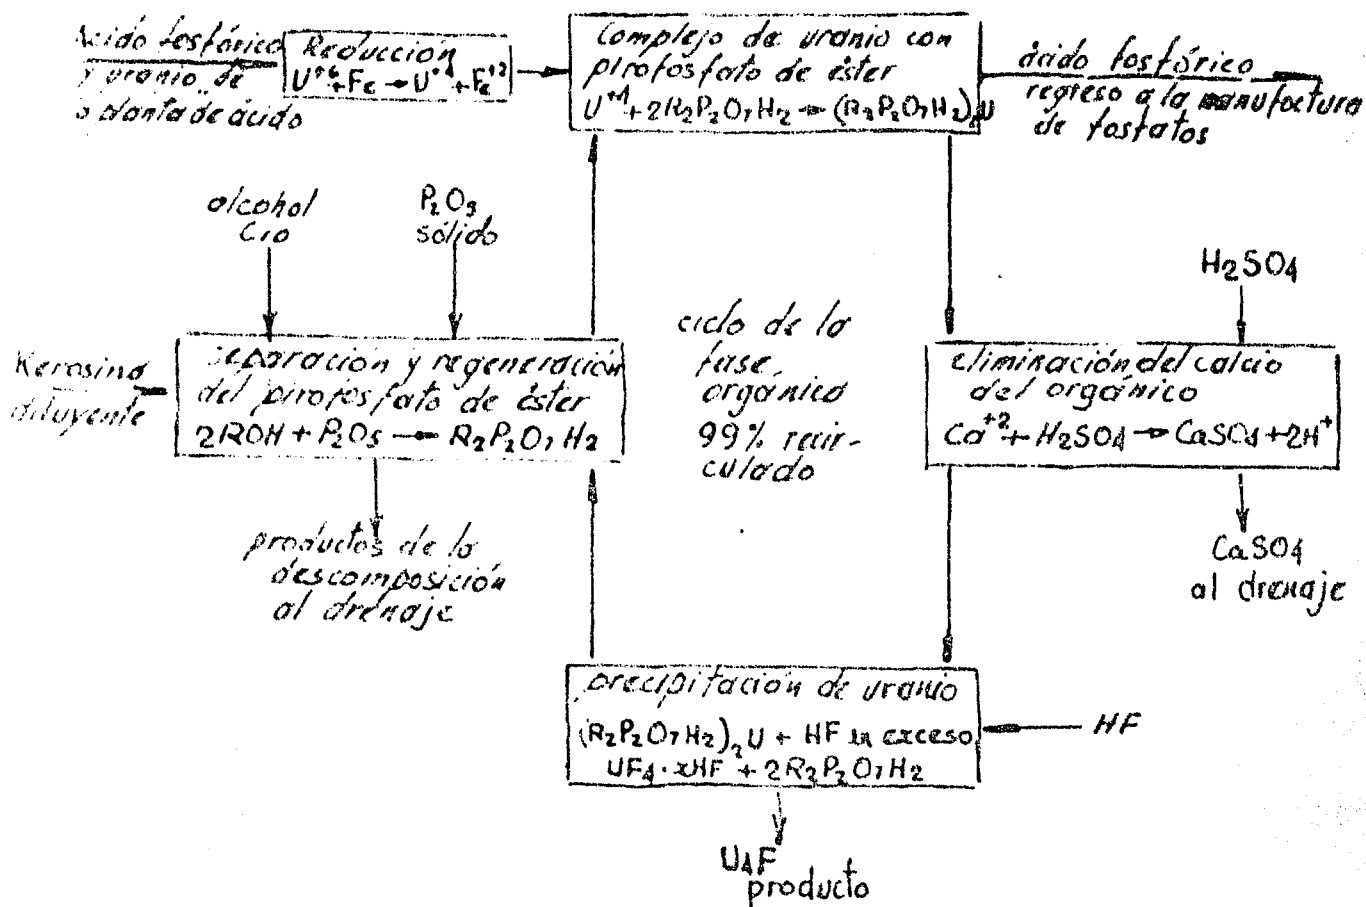 Ácido fosfórico
y uranio de
planta de ácido
Reducción
U+6+Fe → U+4+Fe+2
Complejo de uranio con
pirofosfato de éster
U+4+2R2P2O7H2 → (R2P2O7H2)2U
ácido fosfórico
regreso a la manufactura
de fosfatos
alcohol
C10
P2O5
sólido
H2SO4
Kerosina
diluyente
separación y regeneración
del pirofosfato de éster
2ROH + P2O5 → R2P2O7H2
ciclo de la
fase
orgánica
99% recir-
culado
eliminación del calcio
del orgánico
Ca+2 + H2SO4 → CaSO4 + 2H+
productos de la
descomposición
al drenaje
CaSO4
al drenaje
precipitación de uranio
(R2P2O7H2)2U + HF en exceso
UF4·xHF + 2R2P2O7H2
HF
U4F
producto